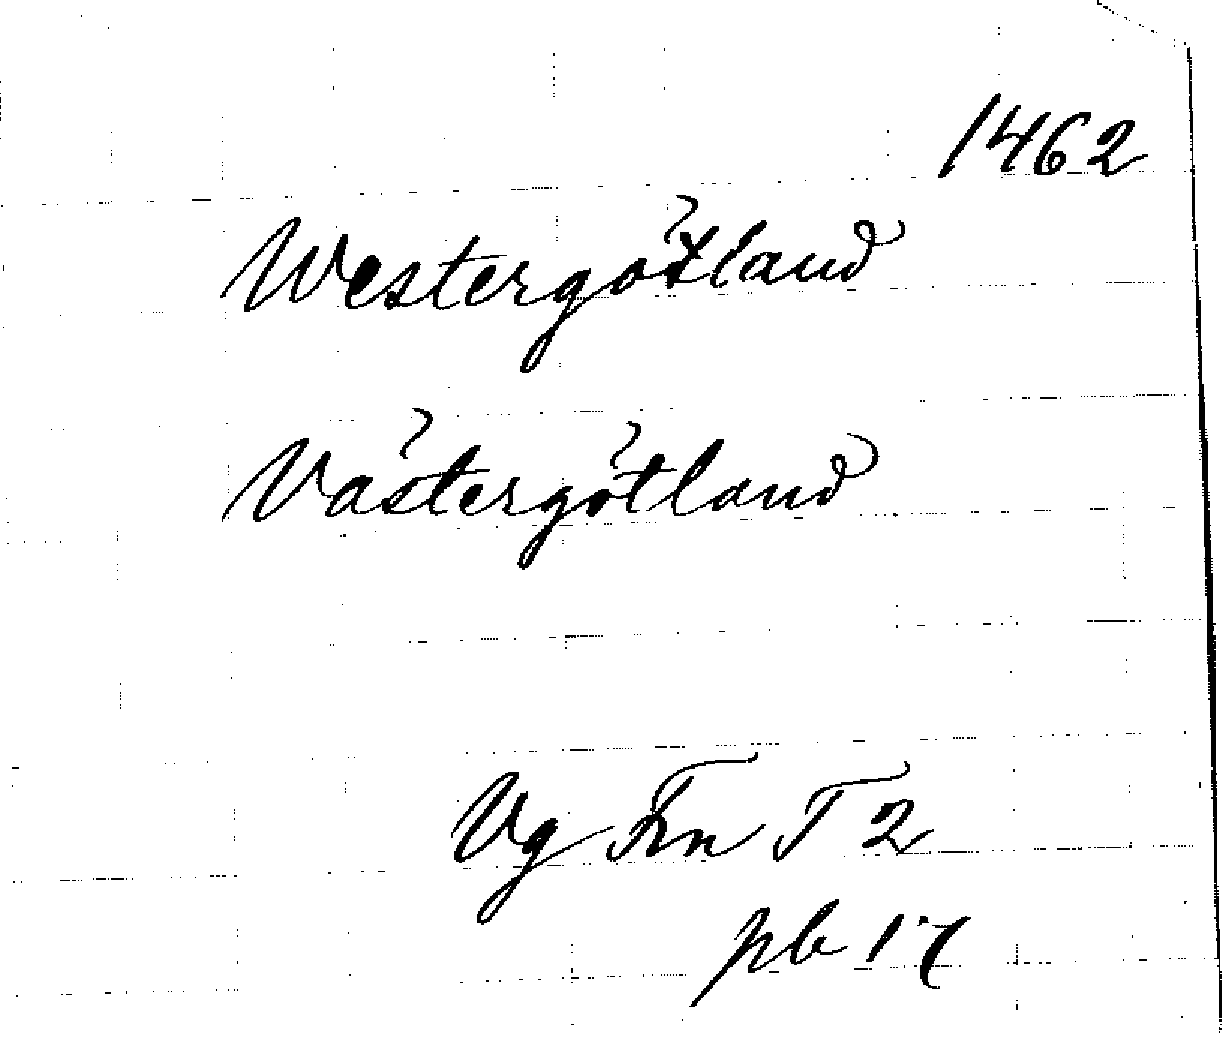 1462
Westergötland
Västergötland
Vg Fn T 2
pb 17